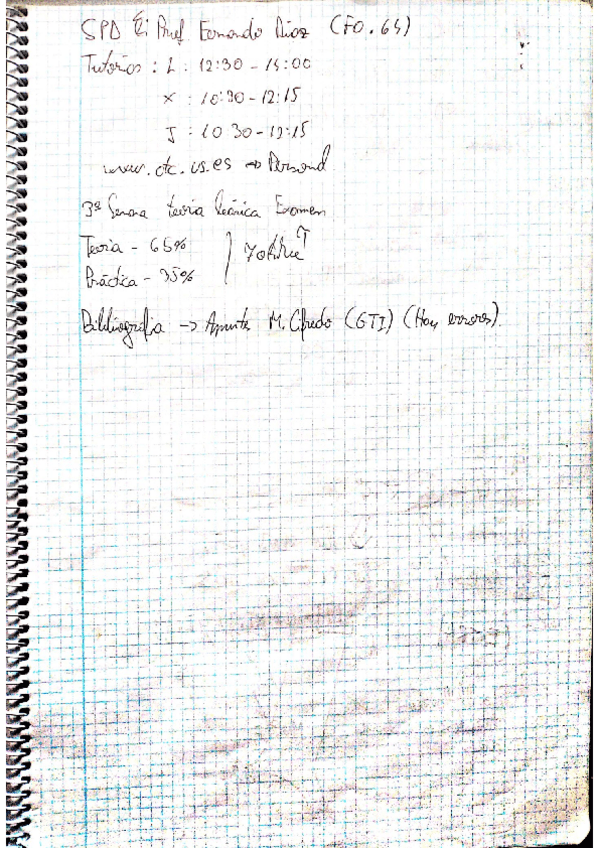 SPD Prof Fernando Díaz (FO.64)
Tutorías : L : 12:30 - 14:00
X : 10:30 - 12:15
J : 10 30 - 12:15
www.dte.us.es → Personal
3ª Semana teoría Examen
Teoría - 65%
Práctica - 35%
Bibliografía → Apuntes M. Cifredo (GTI) (Hay errores).